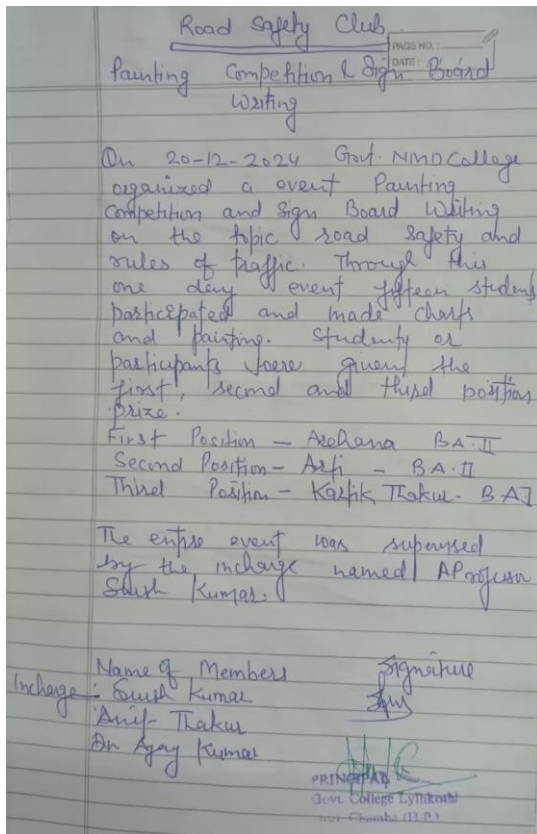 Road Safety Club
PAGE NO.:
DATE:
Painting Competition & Sign Board
Writing
On 20-12-2024 Govt. NMD College
organized a event Painting
Competition and Sign Board Writing
on the topic road safety and
rules of traffic. Through this
one day event fifteen students
participated and made charts
and painting. Students or
participants were given the
first, second and third position
prize.
First Position - Archana BA.II
Second Position - Arti - BA.II
Third Position - Kartik Thakur - BA I
The entire event was supervised
by the incharge named AProfessor
Suresh Kumar.
Name of Members Signature
Incharge : Suresh Kumar
Thakur
Dr Ajay Kumar
PRINCIPAL
Govt. College Lylhkothi
Chamba (H.P.)